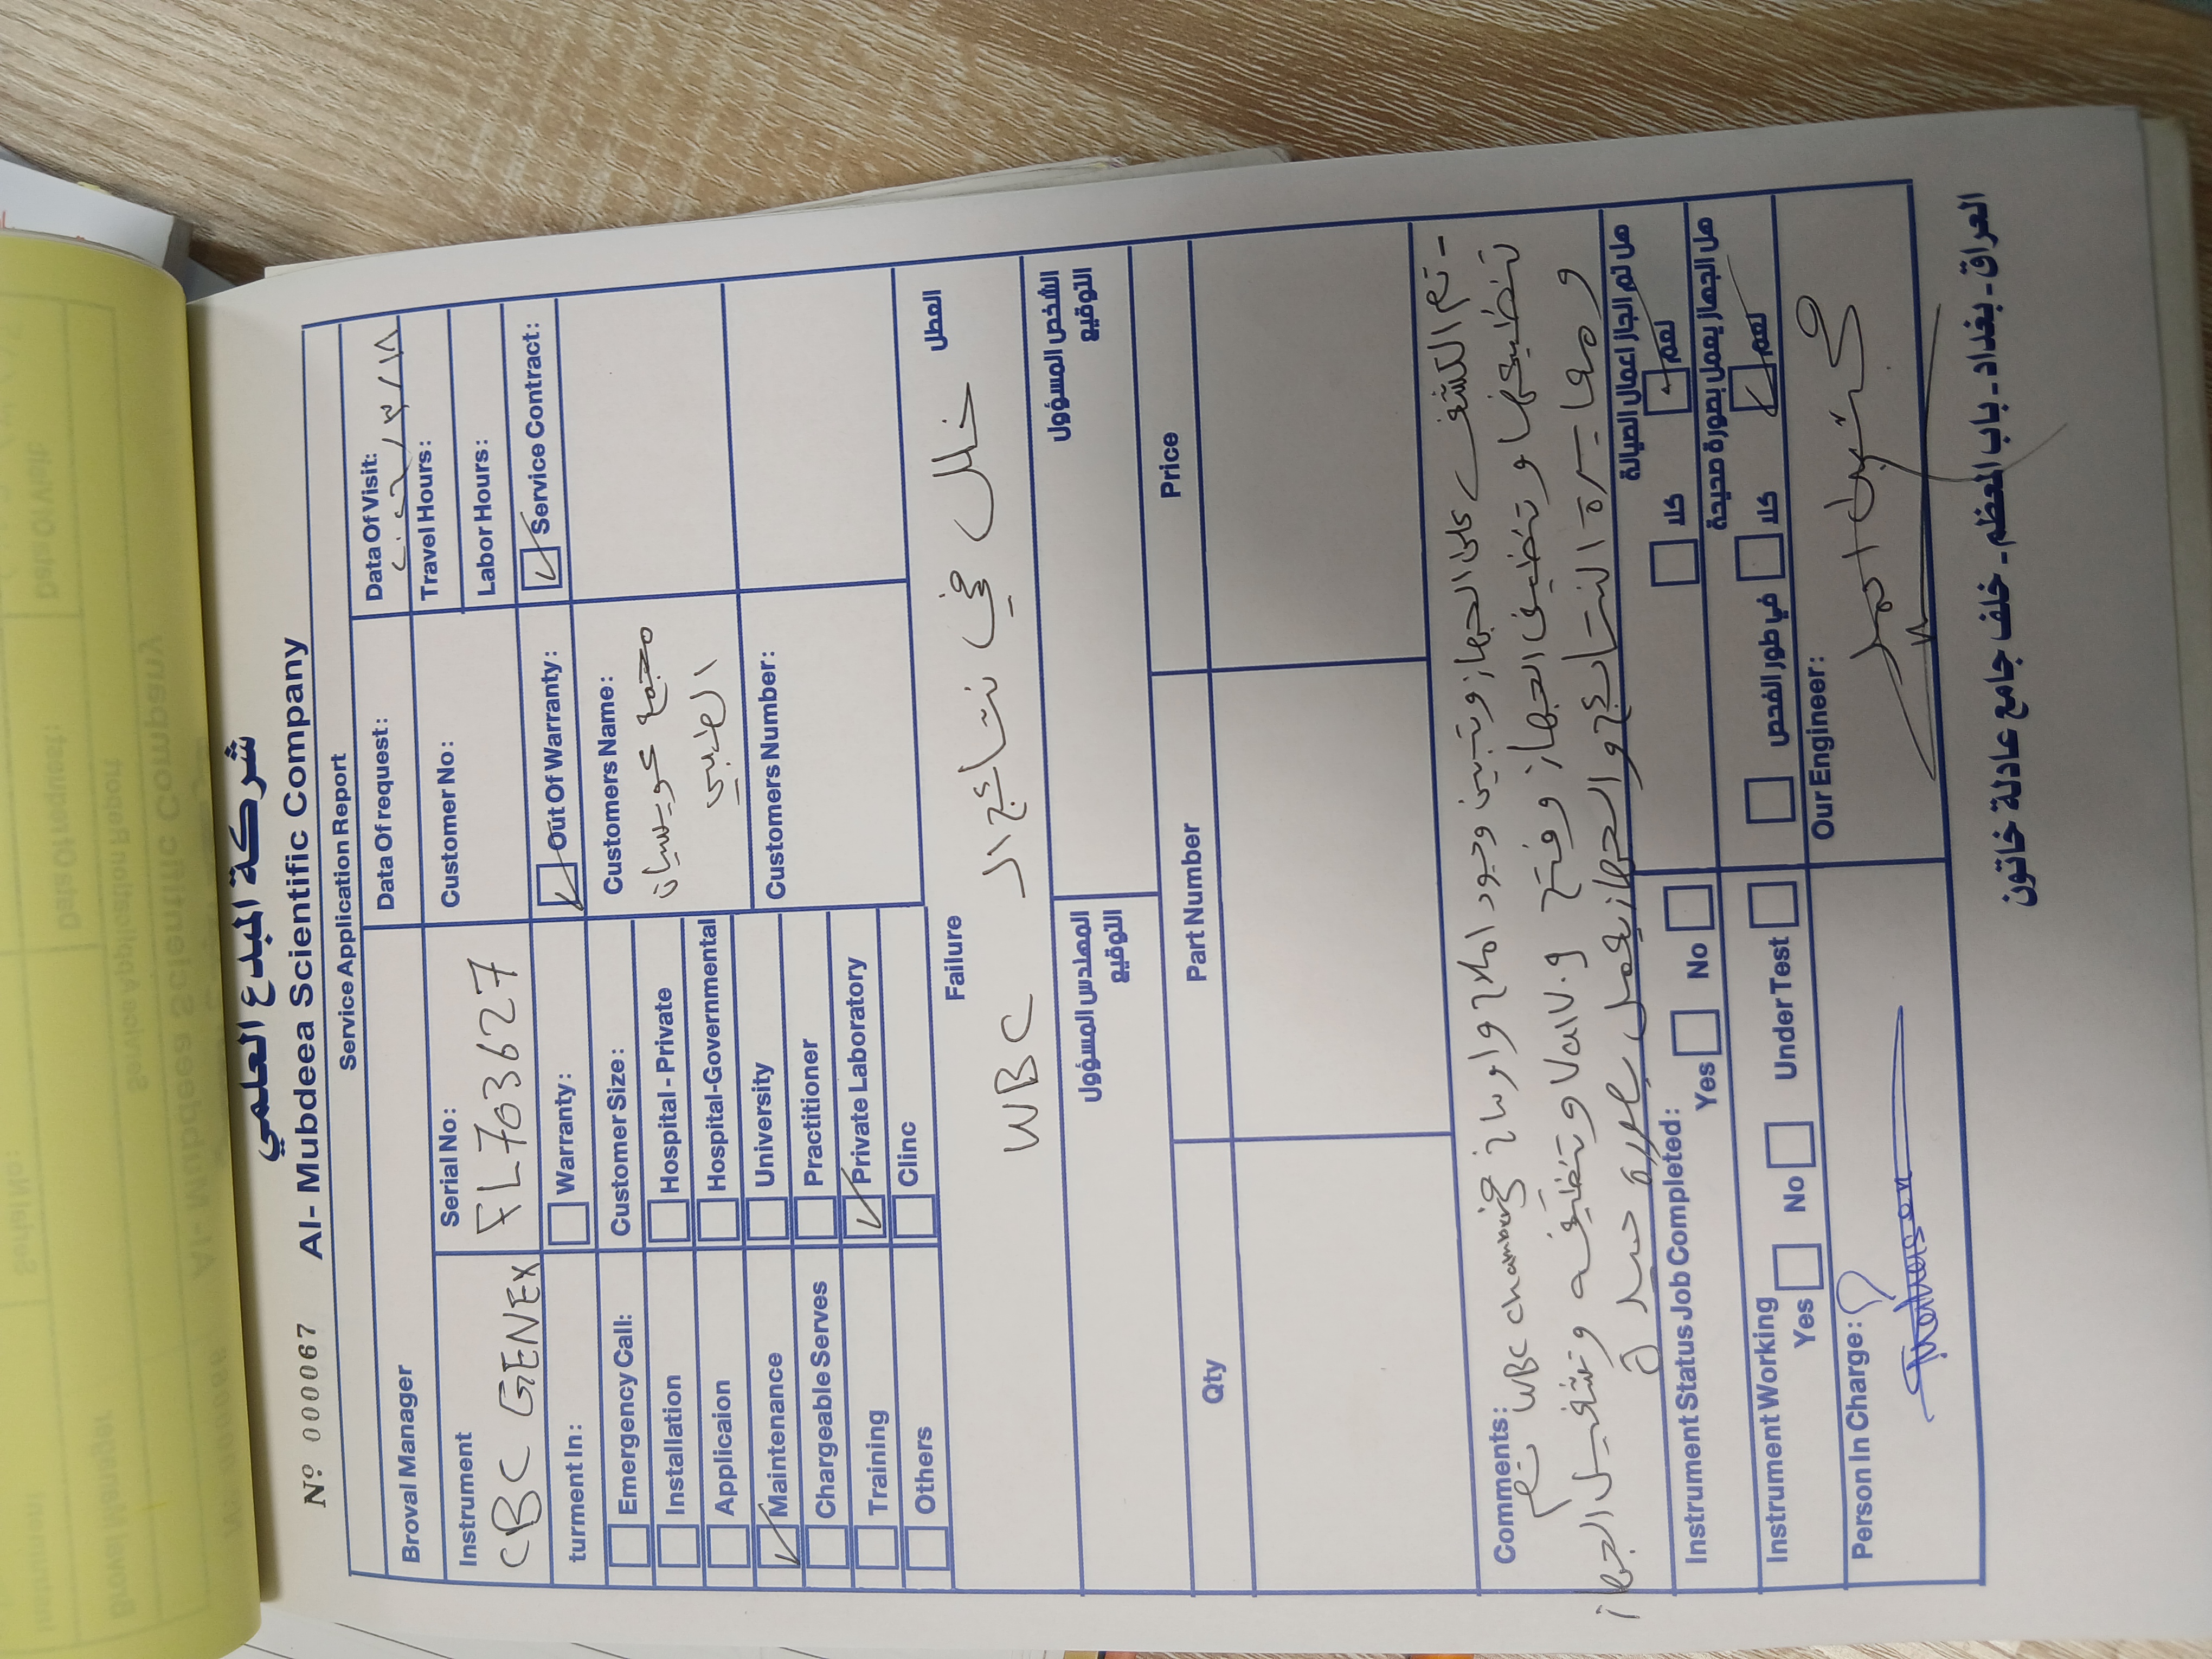 شركة المبدع العلمي
Nº 000067 Al- Mubdeea Scientific Company
Service Application Report
Broval Manager
Data Of request:
Data Of Visit:
٢٠٢٢/٣/١٨
Travel Hours:
Instrument
CBC GENEX
Serial No:
FL703627
Customer No:
Labor Hours:
turment In:
Warranty:
Out Of Warranty:
Service Contract:
Emergency Call:
Installation
Applicaion
Maintenance
Chargeable Serves
Training
Others
Customer Size:
Hospital - Private
Hospital-Governmental
University
Practitioner
Private Laboratory
Clinc
Customers Name:
مجمع عويسيان
الطبي
Customers Number:
Failure
العطل
خلل في نتائج الـ WBC
المهندس المسؤول
التوقيع
الشخص المسؤول
التوقيع
Qty
Part Number
Price
Comments:
- تم الكشف على الجهاز وتبين وجود املاح واوساخ في WBC chamber تم
تنظيفها و تنظيف الجهاز وفتح Valv.9 وتنظيفه وتشغيل الجهاز
ومعايرة النتائج و الجهاز يعمل بصورة جيدة
Instrument Status Job Completed:
Yes No
هل تم انجاز اعمال الصيانة
نعم كلا
Instrument Working
Yes No Under Test
هل الجهاز يعمل بصورة صحيحة
نعم كلا في طور الفحص
Person In Charge:
Our Engineer:
احمد
العراق - بغداد - باب المعظم - خلف جامع عادلة خاتون